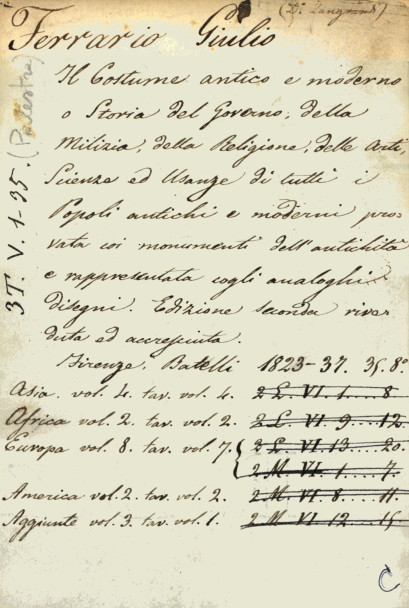 (Di Zangrandi)
Ferrario Giulio
Il Costume antico e moderno
o Storia del Governo, della
Milizia, della Religione, delle Arti,
Scienze ed Usanze di tutti i
Popoli antichi e moderni pro-
vata coi monumenti dell'antichità
e rappresentata cogli analoghi
disegni. Edizione seconda rive-
duta ed accresciuta.
Firenze. Batelli 1823-37. 35. 8°
Asia. vol. 4. tav. vol. 4. 2 L. VI. 1....8
Africa vol. 2. tav. vol. 2. 2 L. VI. 9....12.
Europa vol. 8. tav. vol. 7. { 2 L. VI. 13....20.
2 M. VI. 1....7.
America vol. 2. tav. vol. 2. 2 M. VI. 8....11
Aggiunte vol. 3. tav. vol. 1. 2 M. VI. 12....15
3T. V. 1-35. (Palestra)
C